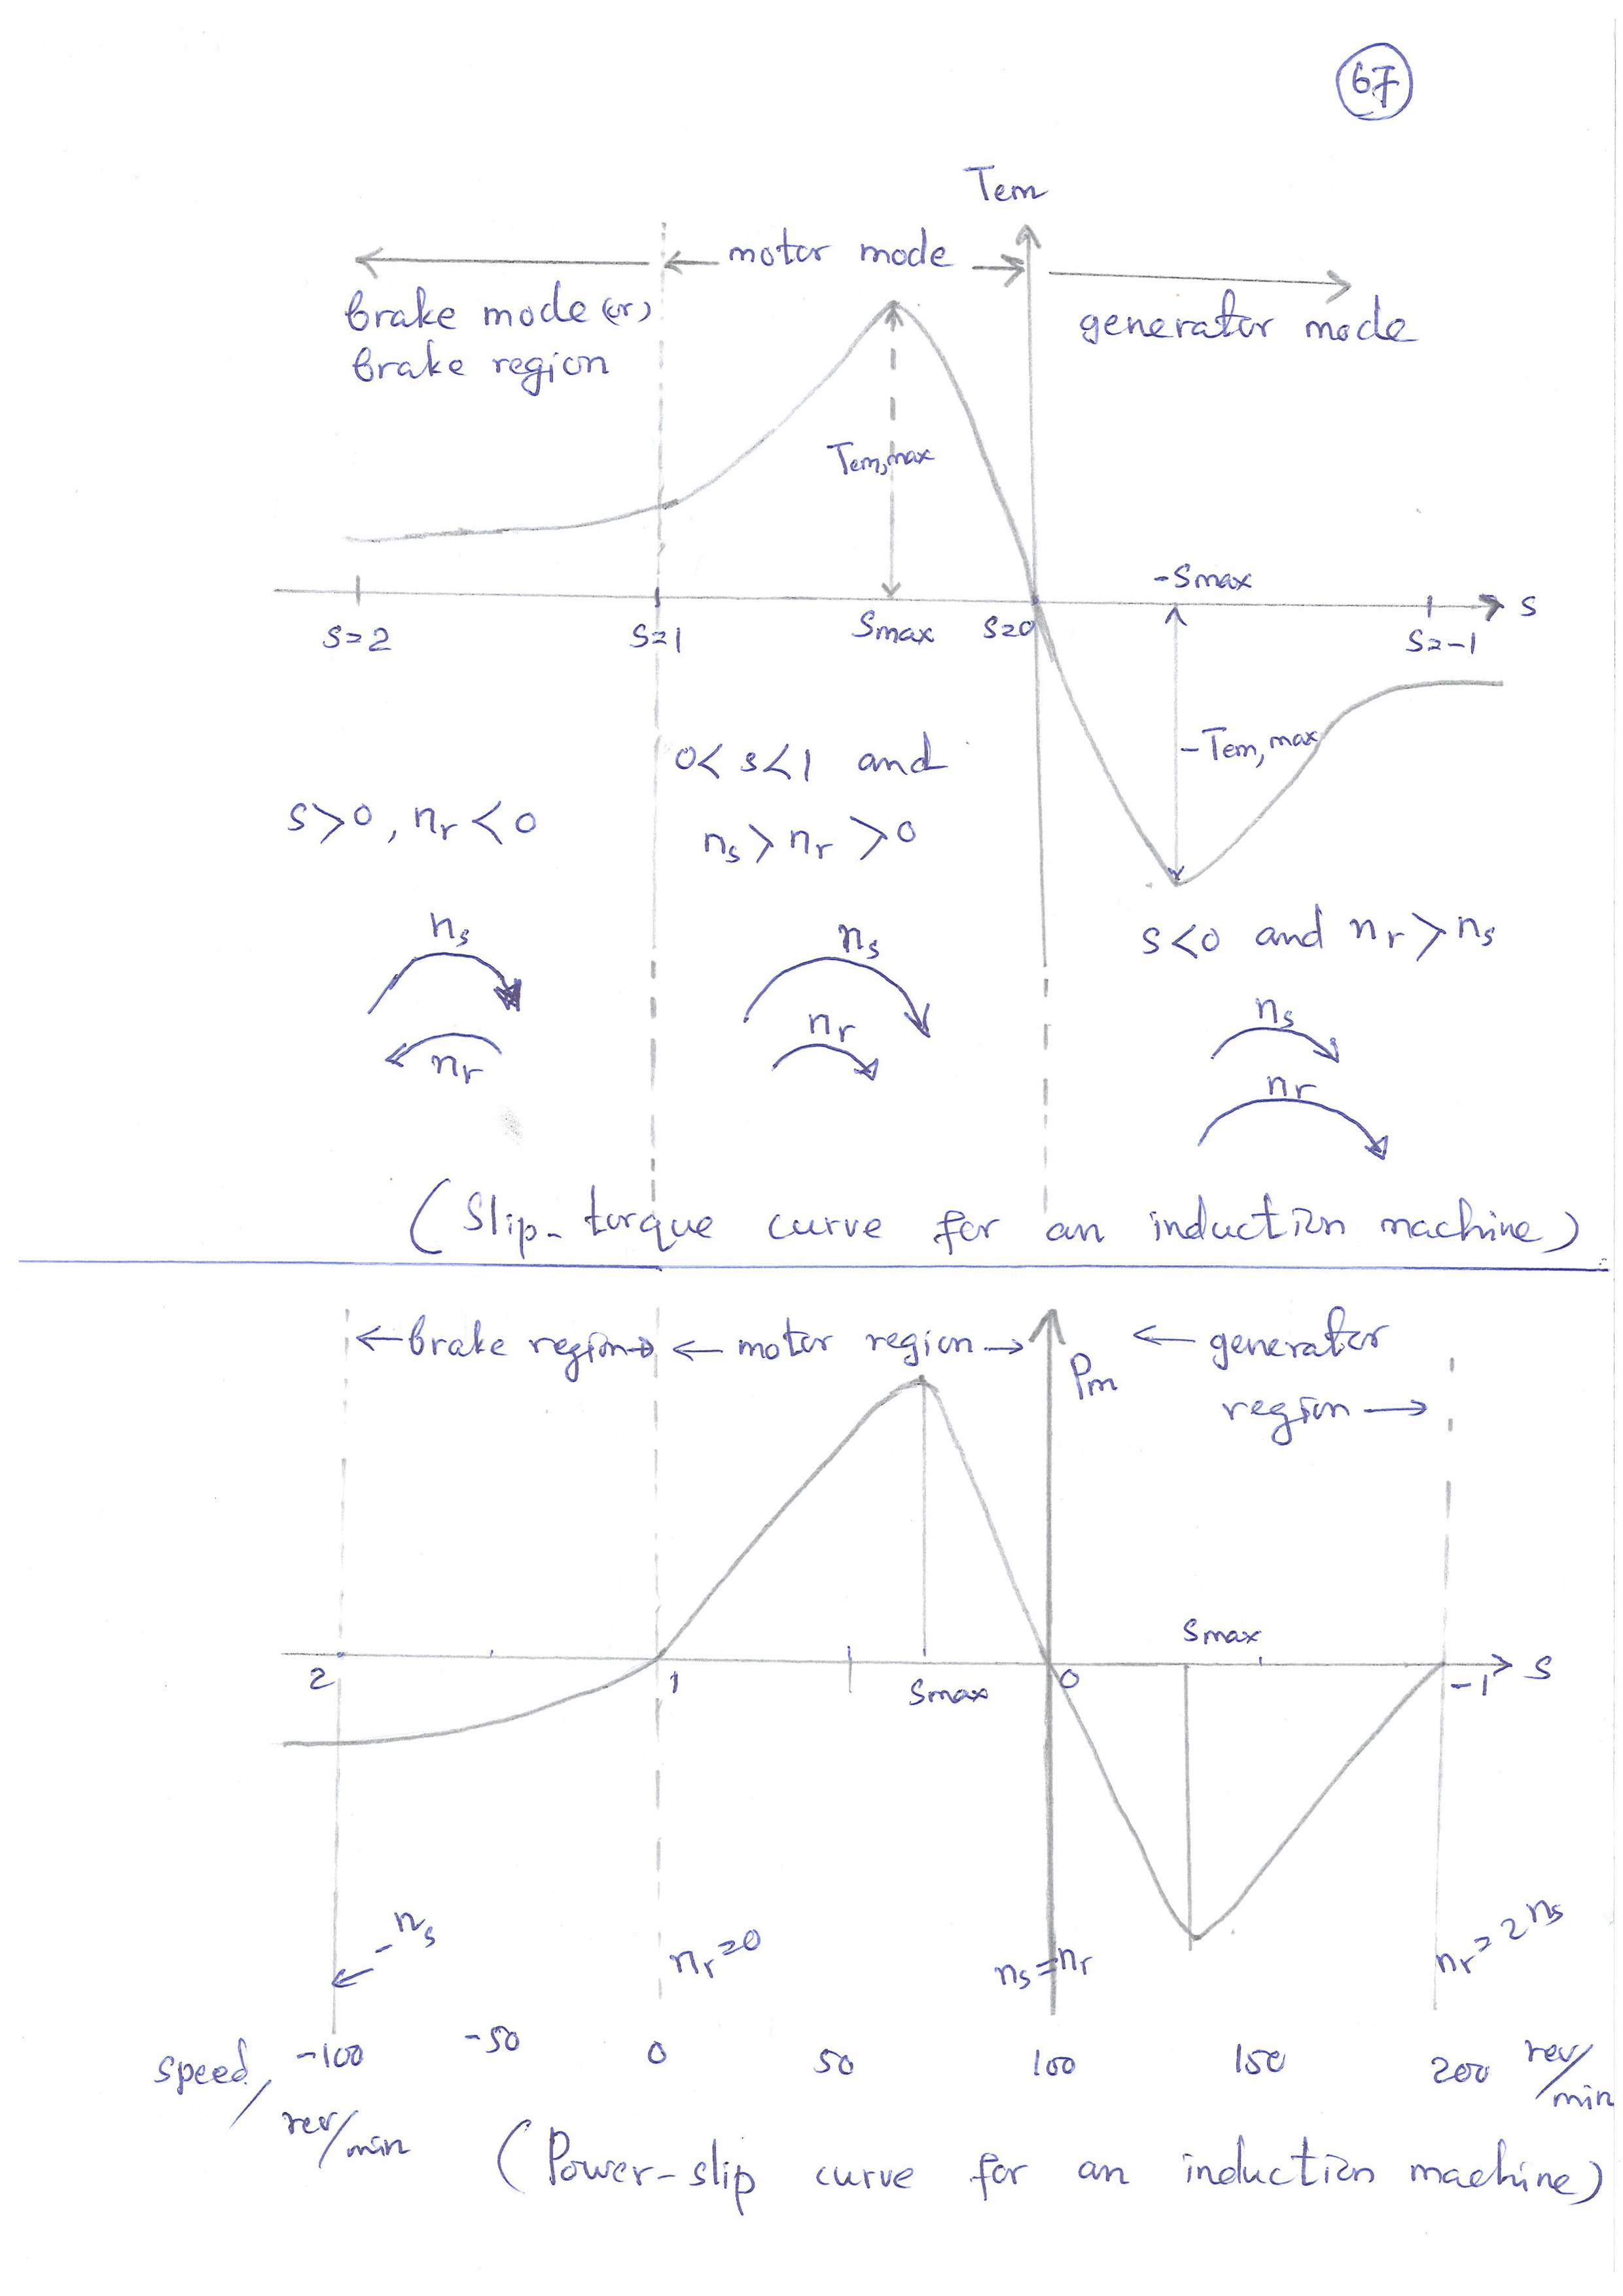 67
Tem
motor mode
brake mode (or)
brake region
generator mode
Tem,max
-Smax
S=2
S=1
Smax
S=0
S=-1
S
-Tem, max
0< s<1 and
ns > nr > 0
s>0, nr < 0
s<0 and nr > ns
ns
nr
ns
nr
ns
nr
(Slip-torque curve for an induction machine)
brake region
motor region
generator
region
Pm
Smax
2
1
Smax
0
-1
S
-ns
nr=0
ns=nr
nr=2ns
speed/
rev/min
-100
-50
0
50
100
150
200
rev/min
(Power-slip curve for an induction machine)